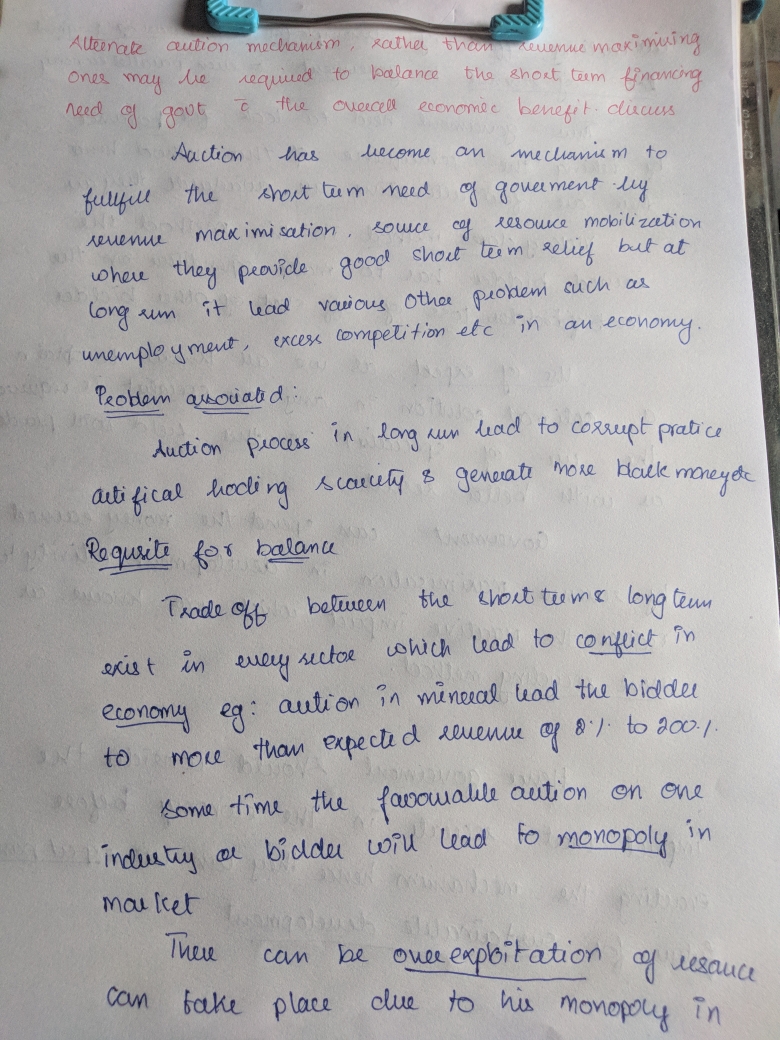 Alternate aution mechanism, rather than revenue maximixing
ones may be required to balance the short term financing
need of govt c̄ the overcell economic benefit. discuss
Auction has become an mechanism to
fullfill the short tum need of government by
revenue maximisation, souce of resouce mobilization
where they provide good short term relief but at
long run it lead various other problem such as
unemployment, excess competition etc in an economy.
Problem assosiated:
Auction process in long run lead to corrupt pratice
artifical hoding scarcity & generate more black money etc
Requsite for balance
Trade off between the short term & long term
exist in every sector which lead to conflict in
economy eg: aution in mineral lead the bidder
to more than expected revenue of 8% to 200%.
some time the favourable aution on one
industry or bidder will lead to monopoly in
market
There can be over exploitation of resource
can take place due to his monopoly in